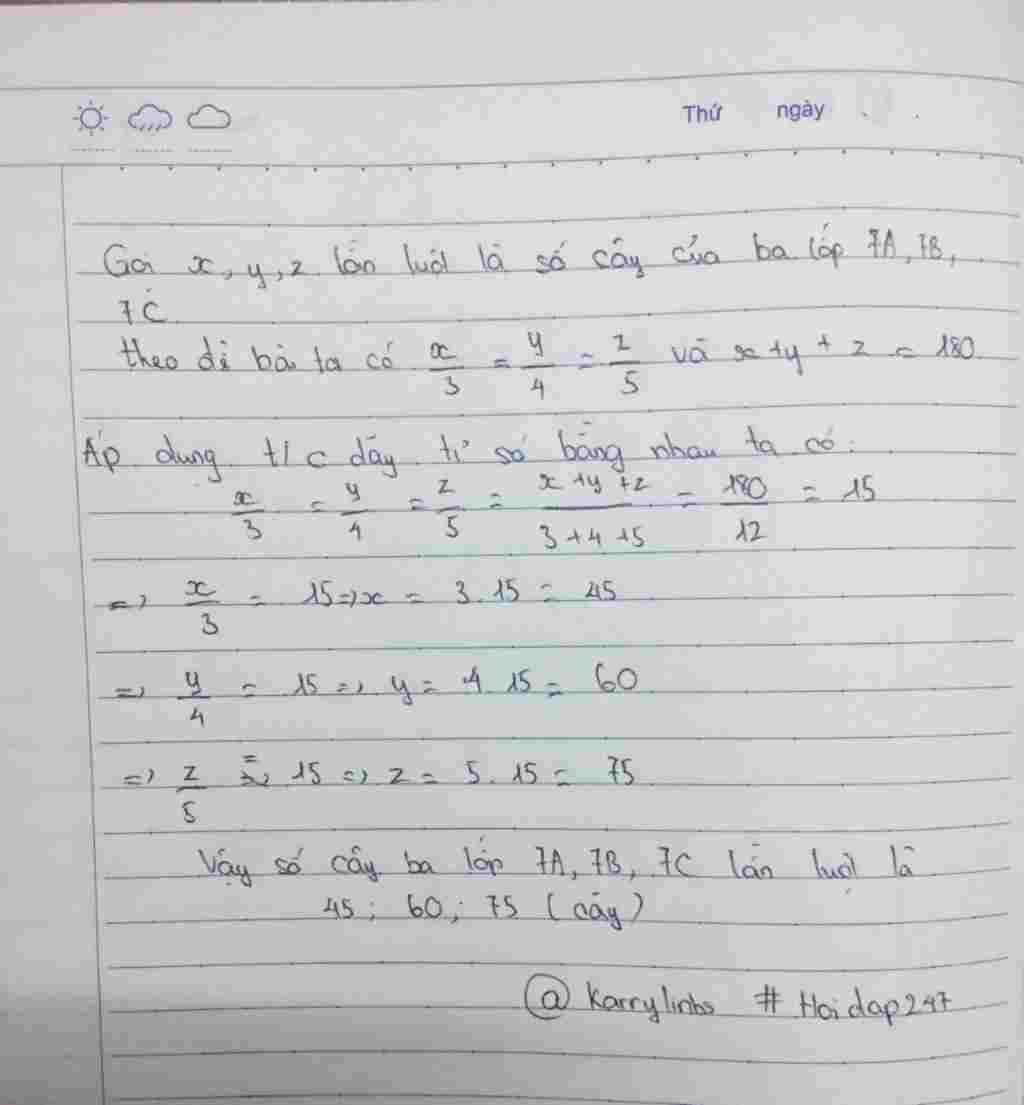 Thứ ngày
Gọi x, y, z lần lượt là số cây của ba lớp 7A, 7B,
7C
theo đề bài ta có x/3 = y/4 = z/5 và x + y + z = 180
Áp dụng t/c dãy tỉ số bằng nhau ta có:
x/3 = y/4 = z/5 = (x + y + z)/(3 + 4 + 5) = 180/12 = 15
=> x/3 = 15 => x = 3.15 = 45
=> y/4 = 15 => y = 4.15 = 60
=> z/5 = 15 => z = 5.15 = 75
Vậy số cây ba lớp 7A, 7B, 7C lần lượt là
45; 60; 75 (cây)
@ karrylinhs # Hoidap247